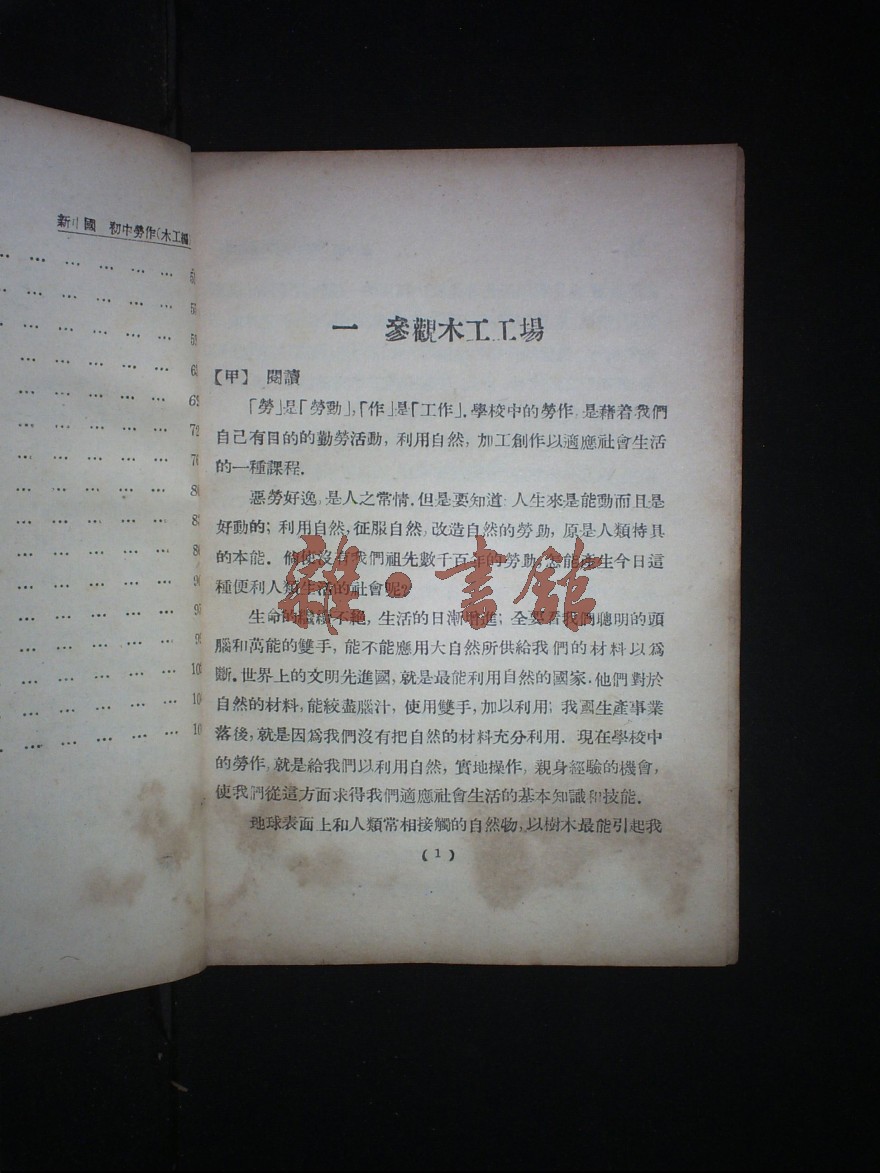 新 國 初中勞作(木工編
… … … … …
… … … … …
… … … … …
… … … … … 6
… … … … 62
… … … … … 72
… … … … … 7
… … … … … 8
… … … … … 8
… … … … … 8
… … … … … 9
… … … … … 97
… … … … … 9
… … … … … 10
… … … … … 10
… … … … … 10
一 參觀木工工場
【甲】 閱讀
「勞」是「勞動」,「作」是「工作」. 學校中的勞作, 是藉着我們
自己有目的的勤勞活動, 利用自然, 加工創作以適應社會生活
的一種課程.
惡勞好逸, 是人之常情. 但是要知道: 人生來是能動而且是
好動的; 利用自然, 征服自然, 改造自然的勞動, 原是人類特具
的本能. 倘使沒有我們祖先數千百年的勞動, 怎能產生今日這
種便利人類生活的社會呢?
生命的繼續不絕, 生活的日漸增進; 全要看我們聰明的頭
腦和萬能的雙手, 能不能應用大自然所供給我們的材料以爲
斷. 世界上的文明先進國, 就是最能利用自然的國家. 他們對於
自然的材料, 能絞盡腦汁, 使用雙手, 加以利用; 我國生產事業
落後, 就是因爲我們沒有把自然的材料充分利用. 現在學校中
的勞作, 就是給我們以利用自然, 實地操作, 親身經驗的機會,
使我們從這方面求得我們適應社會生活的基本知識和技能.
地球表面上和人類常相接觸的自然物, 以樹木最能引起我
( 1 )
雜·書館